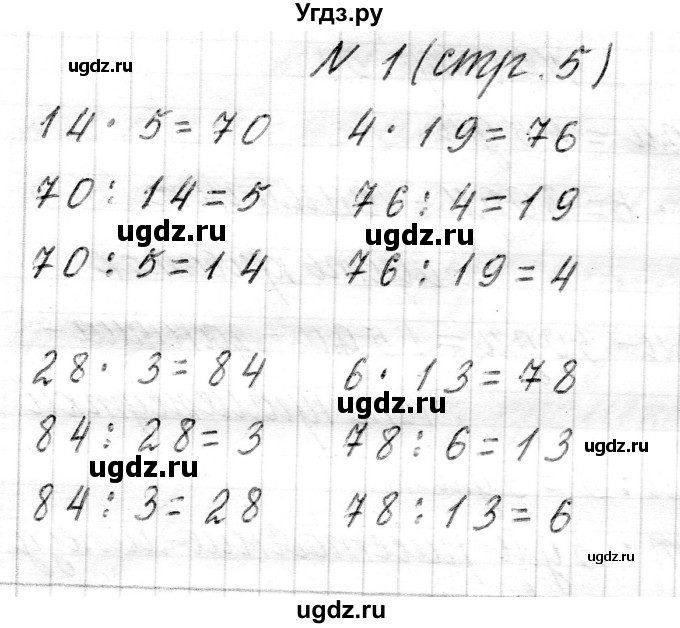 Угдз.ру
ugdz.ru
N 1 (стр. 5)
14 · 5 = 70 4 · 19 = 76
70 : 14 = 5 76 : 4 = 19
ugdz.ru ugdz.ru
70 : 5 = 14 76 : 19 = 4
28 · 3 = 84 6 · 13 = 78
ugdz.ru
84 : 28 = 3 78 : 6 = 13 ugdz.ru
ugdz.ru
84 : 3 = 28 78 : 13 = 6
ugdz.ru
ugdz.ru